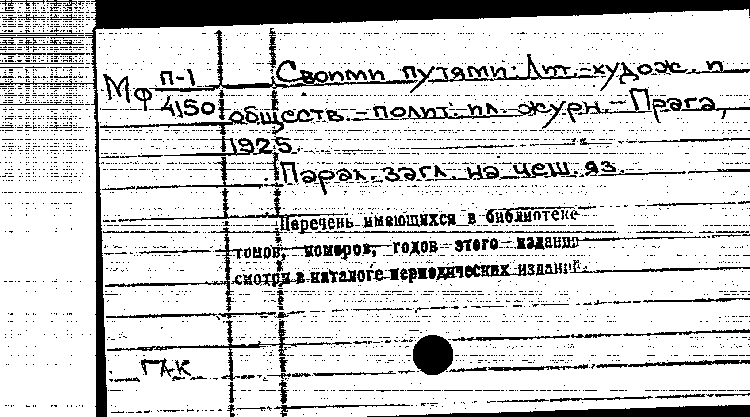 Мф П-1
4150
Своими путями: Лит.-худож. и
обществ.-полит. ил. журн. - Прага,
1925.
Парал. загл. на чеш. яз.
Перечень имеющихся в библиотеке
томов, номеров, годов этого издания
смотри в каталоге периодических изданий.
ГАК